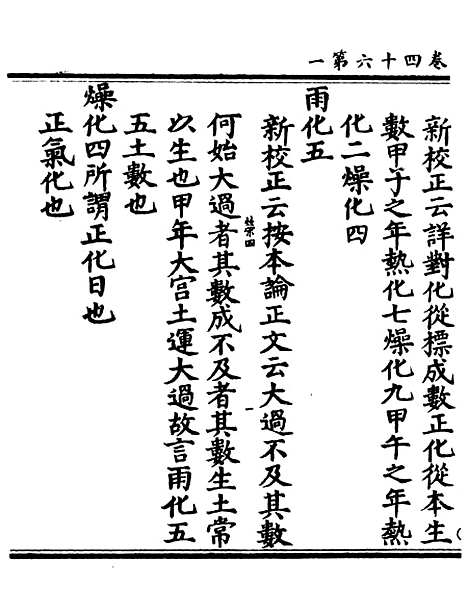 卷四十六第一
新校正云詳對化從標成數正化從本生
數甲子之年熱化七燥化九甲午之年熱
化二燥化四
雨化五
新校正云按本論正文云大過不及其數
何始大過者其數成不及者其數生土常
以生也甲年大宫土運大過故言雨化五
五土數也
燥化四所謂正化日也
正氣化也